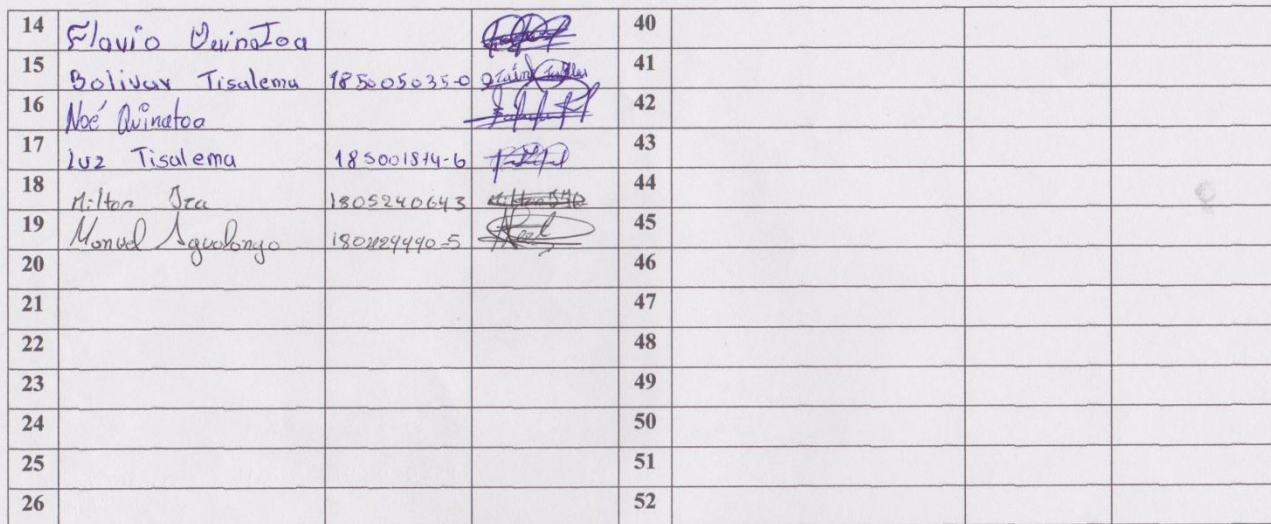 14 Flavio Quinatoa 40
15 Bolivar Tisalema 185005035-0 41
16 Noé Quinatoa 42
17 Luz Tisalema 185001874-6 43
18 Milton Iza 1805240643 44
19 Manuel Agualongo 45
20 46
21 47
22 48
23 49
24 50
25 51
26 52